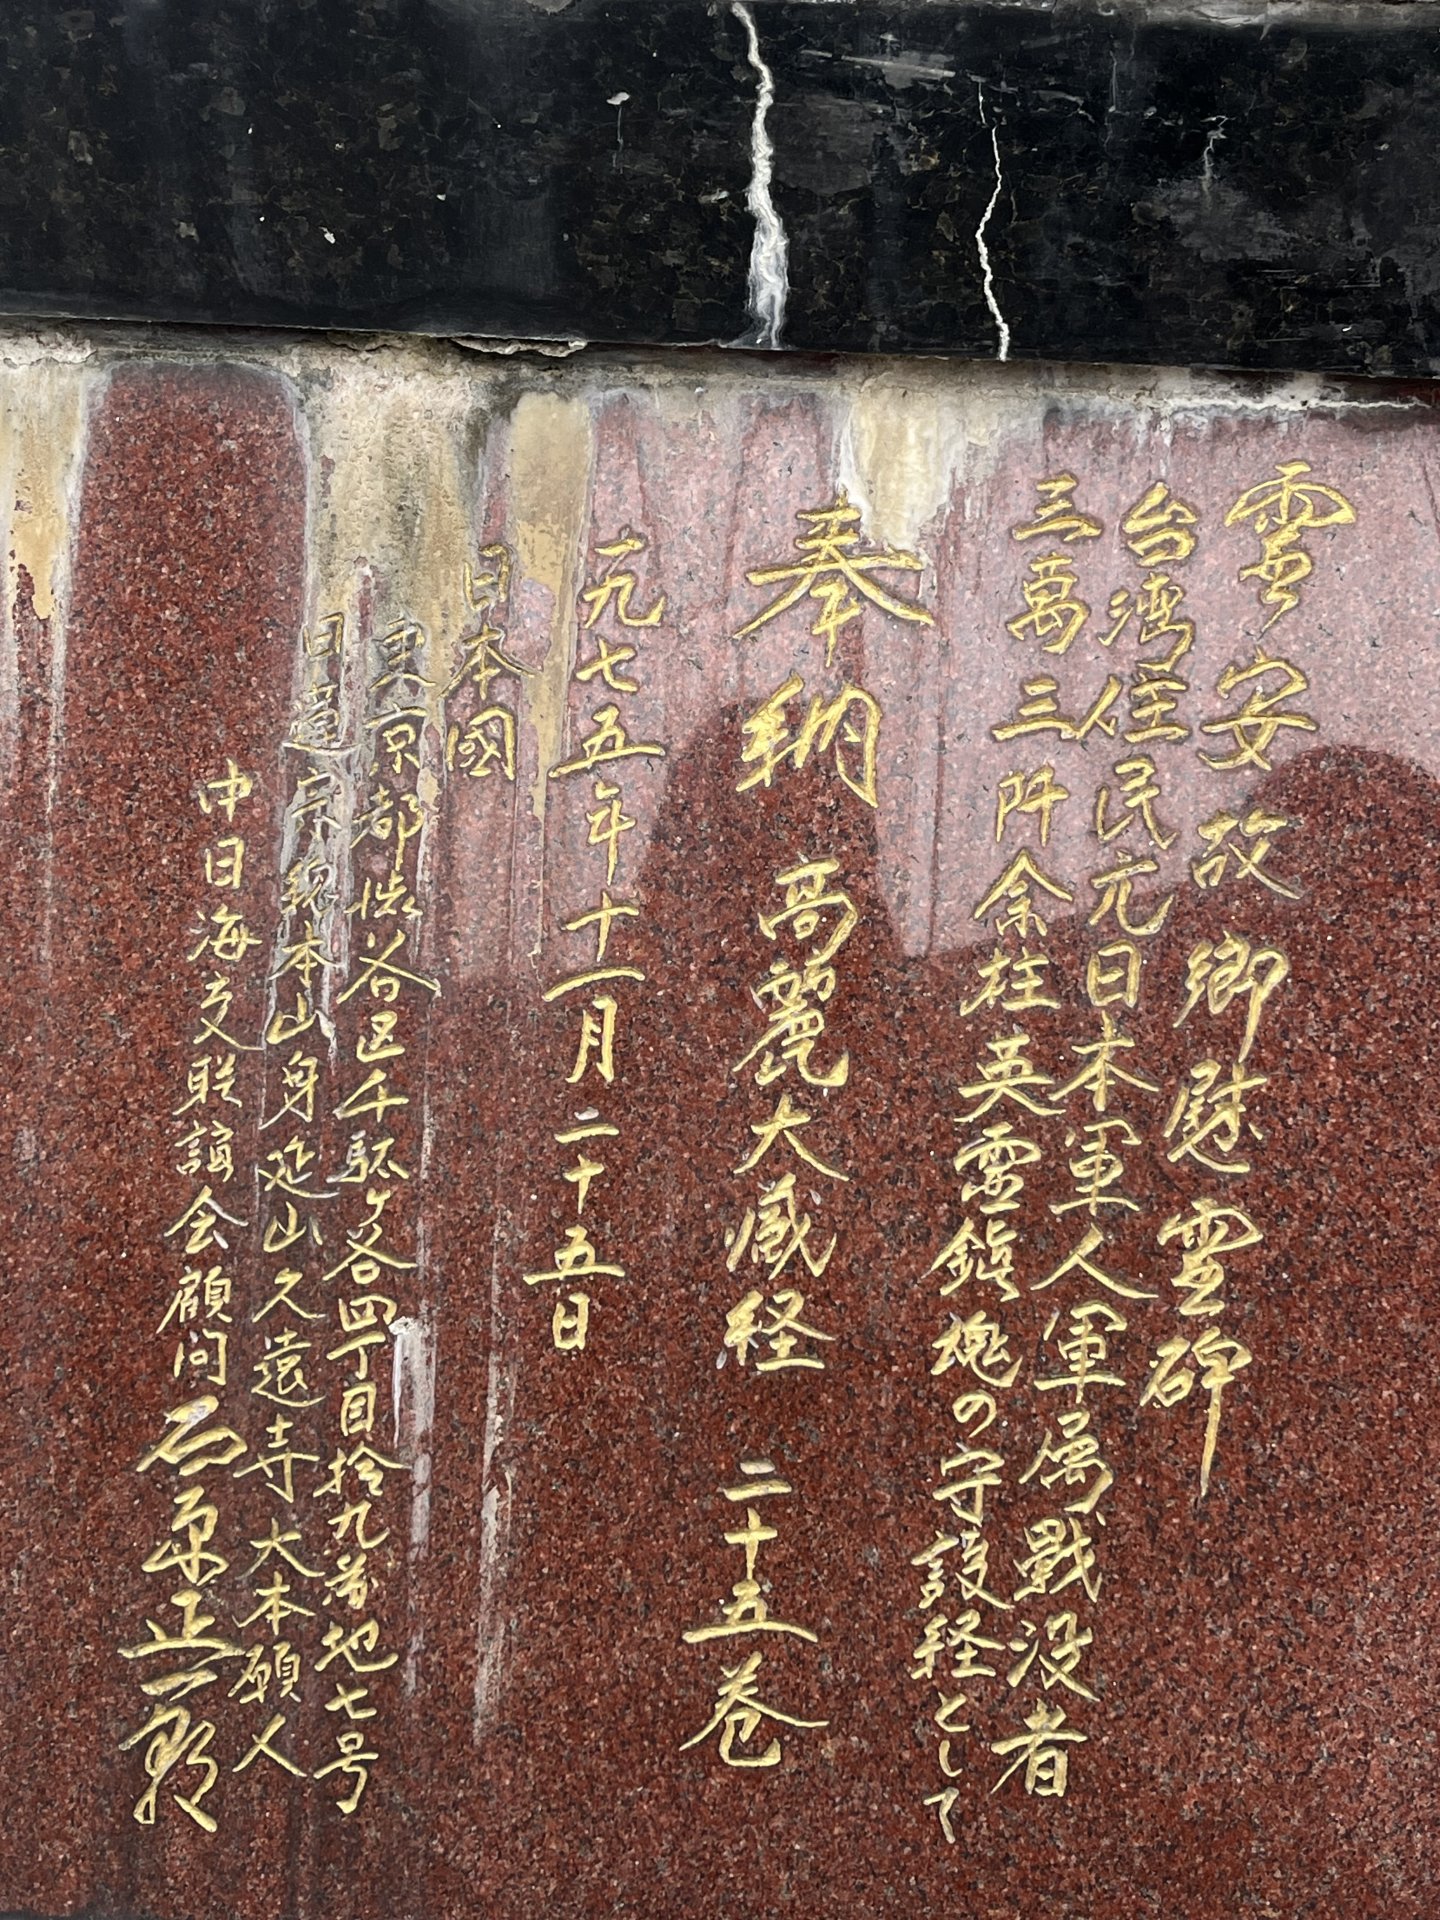 霊安故郷慰霊碑
台湾住民元日本軍人軍属戦没者
三萬三阡余柱英霊鎮魂の守護経として
奉納 高麗大蔵経 二十五巻
一九七五年十一月二十五日
日本國
東京都渋谷区千駄ヶ谷四丁目拾九番地七号
日蓮宗総本山身延山久遠寺大本願人
中日海交聯誼会顧問 石原正一郎